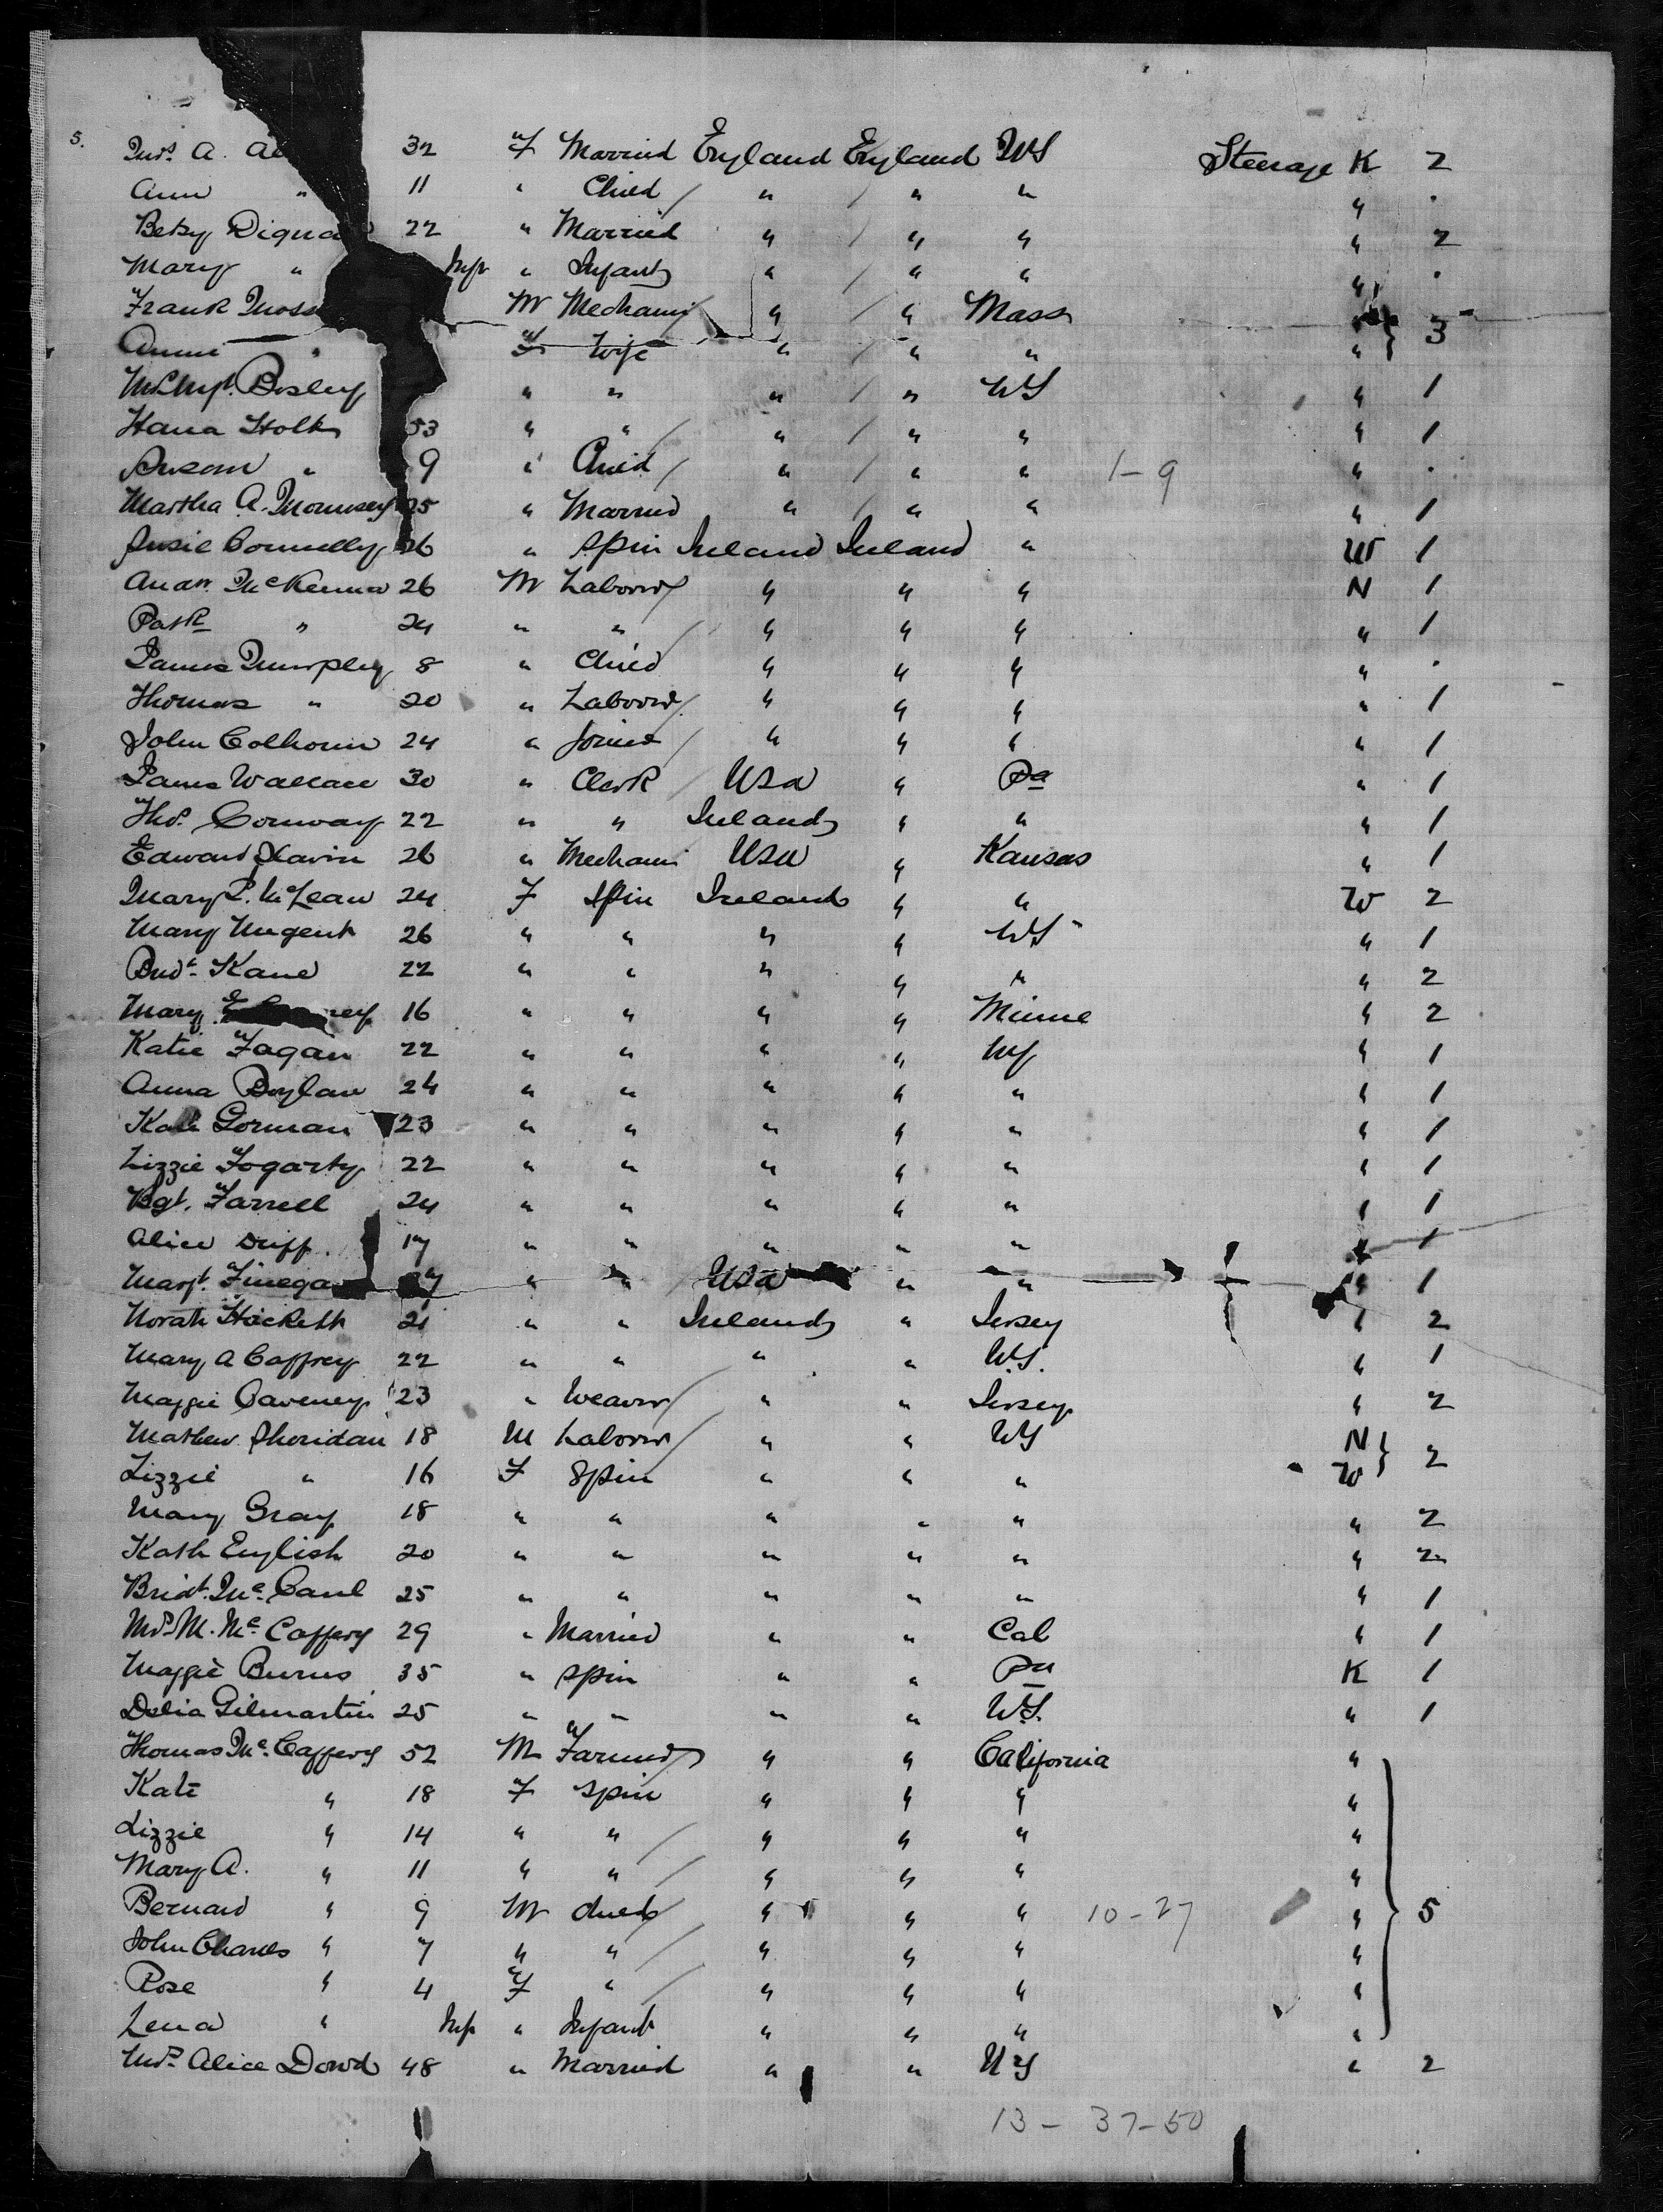 5.
Mrs. A. 32 F Married England England NY Steerage K 2
Ann " 11 " Child / " / " " " .
Betsy 22 " Married " / " " " 2
Mary " Inf " Infant " / " " " .
Frank M Mechanic " / " Mass "
Annie " F Wife " / " " " } 3
Mrs Mgt. Bosley " " " / " NY " 1
Hana Holt 53 " " / " / " " " 1
Susan " 9 " Child / " / " " 1-9 " .
Martha A. 25 " Married " / " " " 1
Susie Connelly 26 " Spin Ireland Ireland " W 1
Andw. McKenna 26 M Laborer " " " N 1
Patk " 24 " " / " " " " 1
James Murphy 8 " Child " " " " .
Thomas " 20 " Laborer / " " " " 1
John Colhoun 24 " Joiner / " " " " 1
James Wallace 30 " Clerk / USA " Pa " 1
Thos. Conway 22 " " Ireland " " " 1
Edward Slavin 26 " Mechanic USA " Kansas " 1
Mary P. McLean 24 F Spin Ireland " " W 2
Mary Nugent 26 " " " " NY " 1
Bridt. Kane 22 " " " " " " 2
Mary 16 " " " " Minne " 2
Katie Fagan 22 " " " " NY " 1
Anna Boylan 24 " " " " " " 1
Kate Gorman 23 " " " " " " 1
Lizzie Fogarty 22 " " " " " " 1
Bgt. Farrell 24 " " " " " " 1
Alice Duff 17 " " " " " " 1
Margt. " " USA " " " 1
Norah Hackett 21 " " Ireland " Jersey " 2
Mary A Caffrey 22 " " " " N.Y. " 1
Maggie Caveney 23 " Weaver / " " Jersey " 2
Mathew Sheridan 18 M Laborer / " " NY N
Lizzie " 16 F Spin " " " W } 2
Mary Gray 18 " " " " " " 2
Kath English 20 " " " " " " 2
Bridt. McCaul 25 " " " " " " 1
Mrs M. McCaffery 29 " Married " " Cal " 1
Maggie Burns 35 " Spin " " Pa K 1
Delia Gilmartin 25 " " " " N.Y. " 1
Thomas McCaffery 52 M Farmer " " California "
Kate " 18 F Spin " " " "
Lizzie " 14 " " / " " " "
Mary A. " 11 " " / " " " "
Bernard " 9 M Child / " " " 10-27 " } 5
John Charles " 7 " " / " " " "
Rose " 4 F " / " " " "
Lena " Inf " Infant " " " "
Mrs Alice Dowd 48 " Married " " NY " 2
13 - 37-50